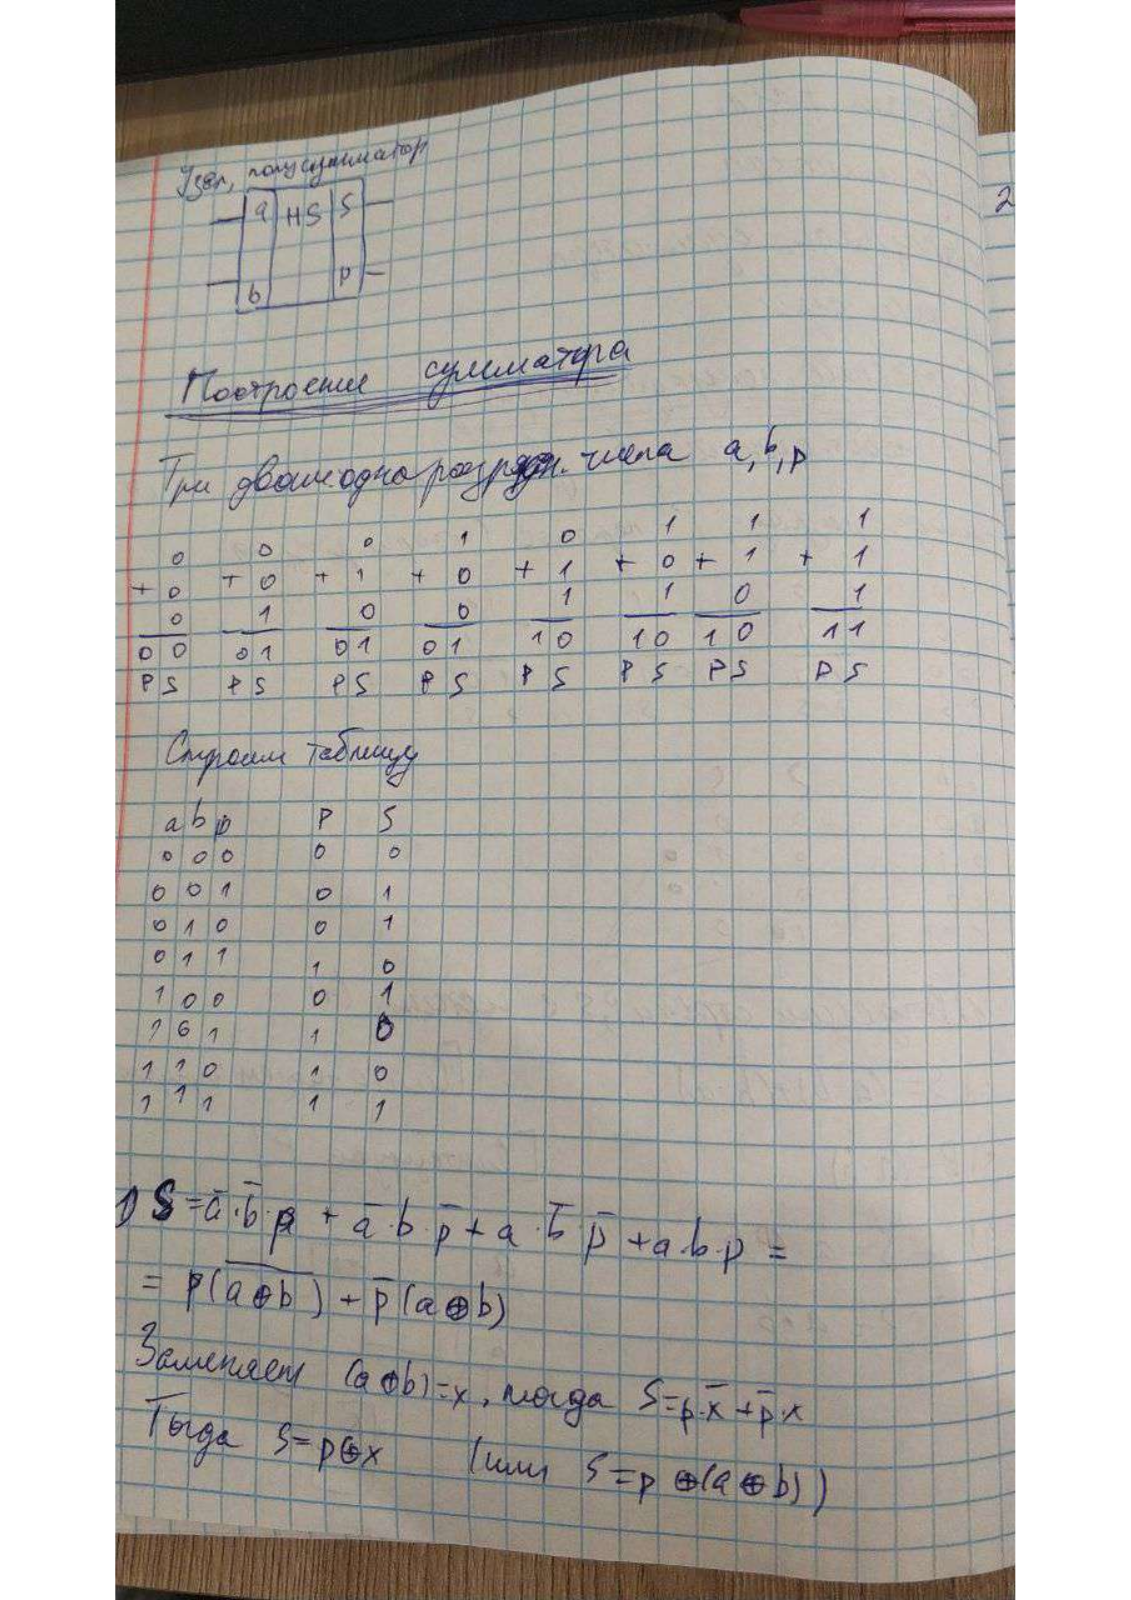 Узел, полусумматор
a HS S
b P
2
Построение сумматора
Три двоич. одноразрядн. числа a, b, p
0 0 0 1 0 1 1 1
+ 0 + 0 + 1 + 0 + 1 + 0 + 1 + 1
0 1 0 0 1 1 0 1
00 01 01 01 10 10 10 11
PS PS PS PS PS PS PS PS
Строим таблицу
a b p P S
0 0 0 0 0
0 0 1 0 1
0 1 0 0 1
0 1 1 1 0
1 0 0 0 1
1 0 1 1 0
1 1 0 1 0
1 1 1 1 1
1) S = a̅·b̅·p + a̅·b·p̅ + a·b̅·p̅ + a·b·p =
= p(a̅⊕̅b̅) + p̅(a⊕b)
Заменяем (a⊕b)=x, тогда S=p·x̅+p̅·x
Тогда S=p⊕x (или S=p⊕(a⊕b))